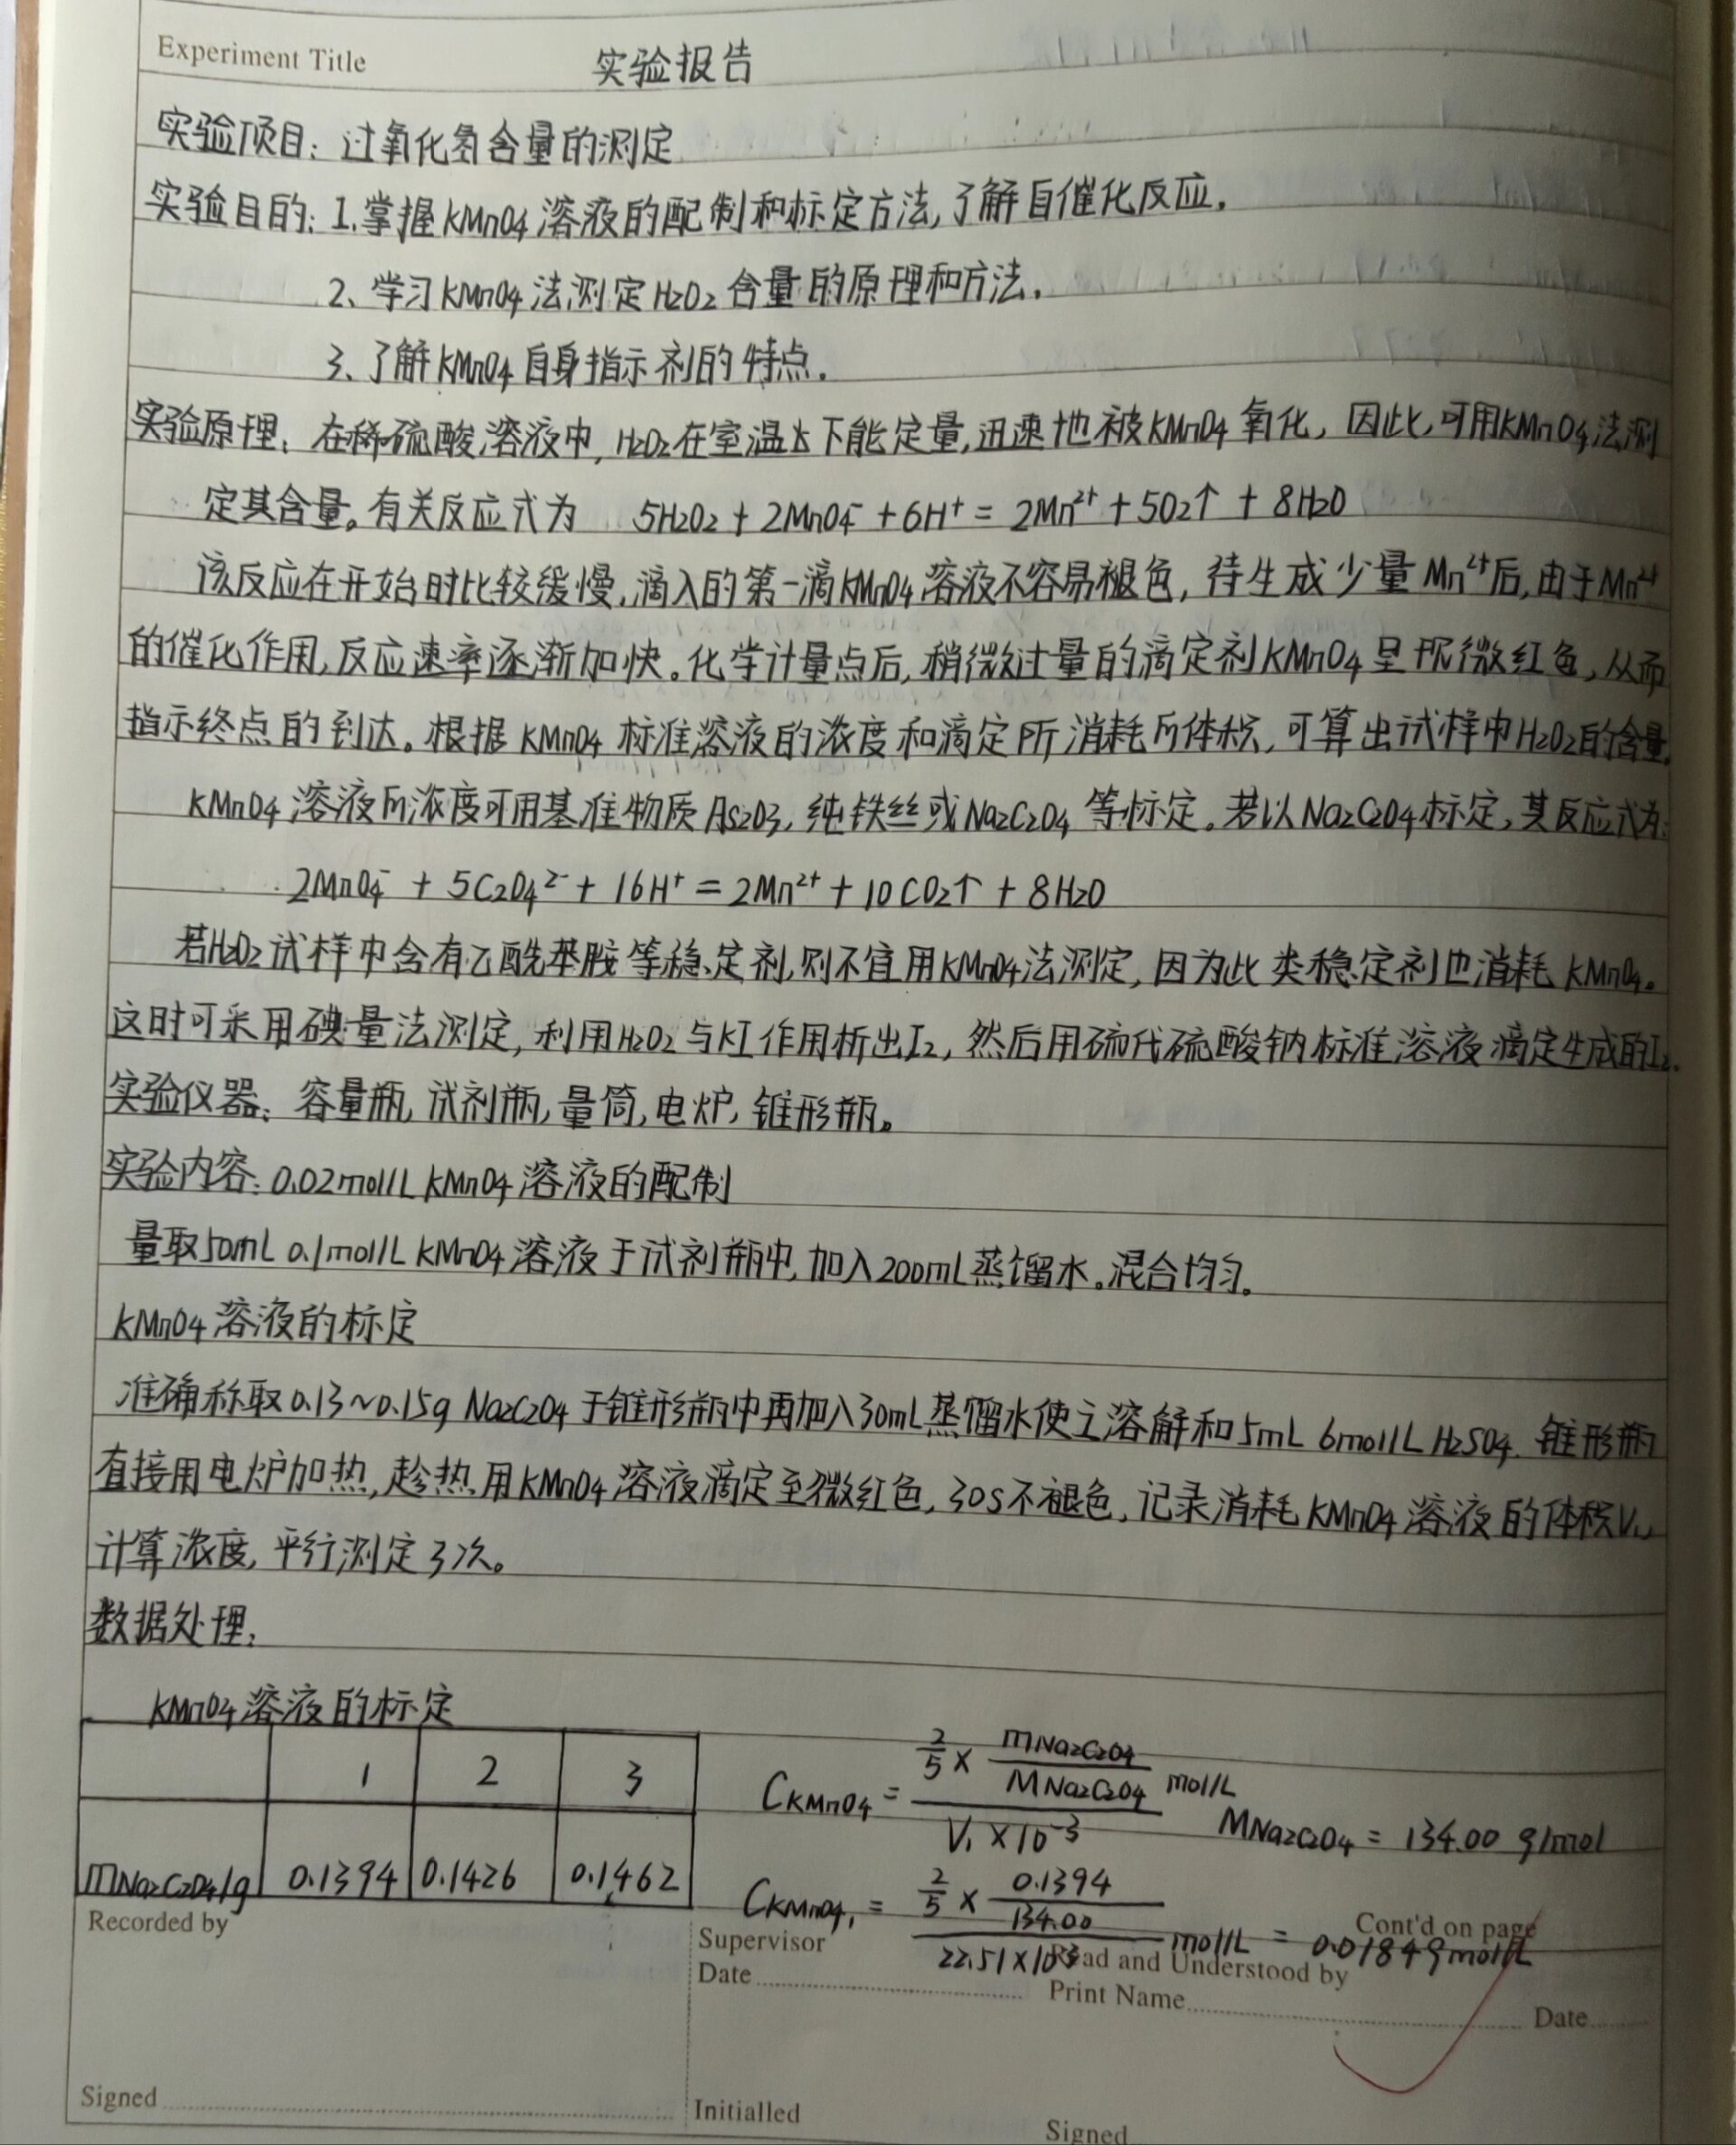 Experiment Title 实验报告
实验项目：过氧化氢含量的测定
实验目的：1.掌握KMnO4溶液的配制和标定方法,了解自催化反应.
2、学习KMnO4法测定H2O2含量的原理和方法.
3、了解KMnO4自身指示剂的特点.
实验原理：在稀硫酸溶液中,H2O2在室温下能定量,迅速地被KMnO4氧化,因此,可用KMnO4法测
定其含量。有关反应式为 5H2O2 + 2MnO4⁻ + 6H⁺ = 2Mn²⁺ + 5O2↑ + 8H2O
该反应在开始时比较缓慢,滴入的第一滴KMnO4溶液不容易褪色,待生成少量Mn²⁺后,由于Mn²⁺
的催化作用,反应速率逐渐加快。化学计量点后,稍微过量的滴定剂KMnO4呈现微红色,从而
指示终点的到达。根据KMnO4标准溶液的浓度和滴定所消耗的体积,可算出试样中H2O2的含量.
KMnO4溶液的浓度可用基准物质As2O3,纯铁丝或Na2C2O4等标定。若以Na2C2O4标定,其反应式为:
2MnO4⁻ + 5C2O4²⁻ + 16H⁺ = 2Mn²⁺ + 10CO2↑ + 8H2O
若H2O2试样中含有乙酰苯胺等稳定剂,则不宜用KMnO4法测定,因为此类稳定剂也消耗KMnO4。
这时可采用碘量法测定,利用H2O2与KI作用析出I2,然后用硫代硫酸钠标准溶液滴定生成的I2.
实验仪器：容量瓶,试剂瓶,量筒,电炉,锥形瓶。
实验内容：0.02mol/L KMnO4溶液的配制
量取50mL 0.1mol/L KMnO4溶液于试剂瓶中,加入200mL蒸馏水。混合均匀。
KMnO4溶液的标定
准确称取0.13~0.15g Na2C2O4于锥形瓶中再加入30mL蒸馏水使之溶解和5mL 6mol/L H2SO4. 锥形瓶
直接用电炉加热,趁热用KMnO4溶液滴定至微红色,30s不褪色,记录消耗KMnO4溶液的体积V1,
计算浓度,平行测定3次。
数据处理：
KMnO4溶液的标定
1 2 3
mNa2C2O4/g 0.1394 0.1426 0.1462
CKMnO4 = (2/5 × mNa2C2O4/MNa2C2O4)/(V1×10⁻³) mol/L MNa2C2O4 = 134.00 g/mol
CKMnO4,1 = (2/5 × 0.1394/134.00)/(22.51×10⁻³) mol/L = 0.01849mol/L
Recorded by
Supervisor
Cont'd on page
Date
Read and Understood by
Print Name
Date
Signed
Initialled
Signed